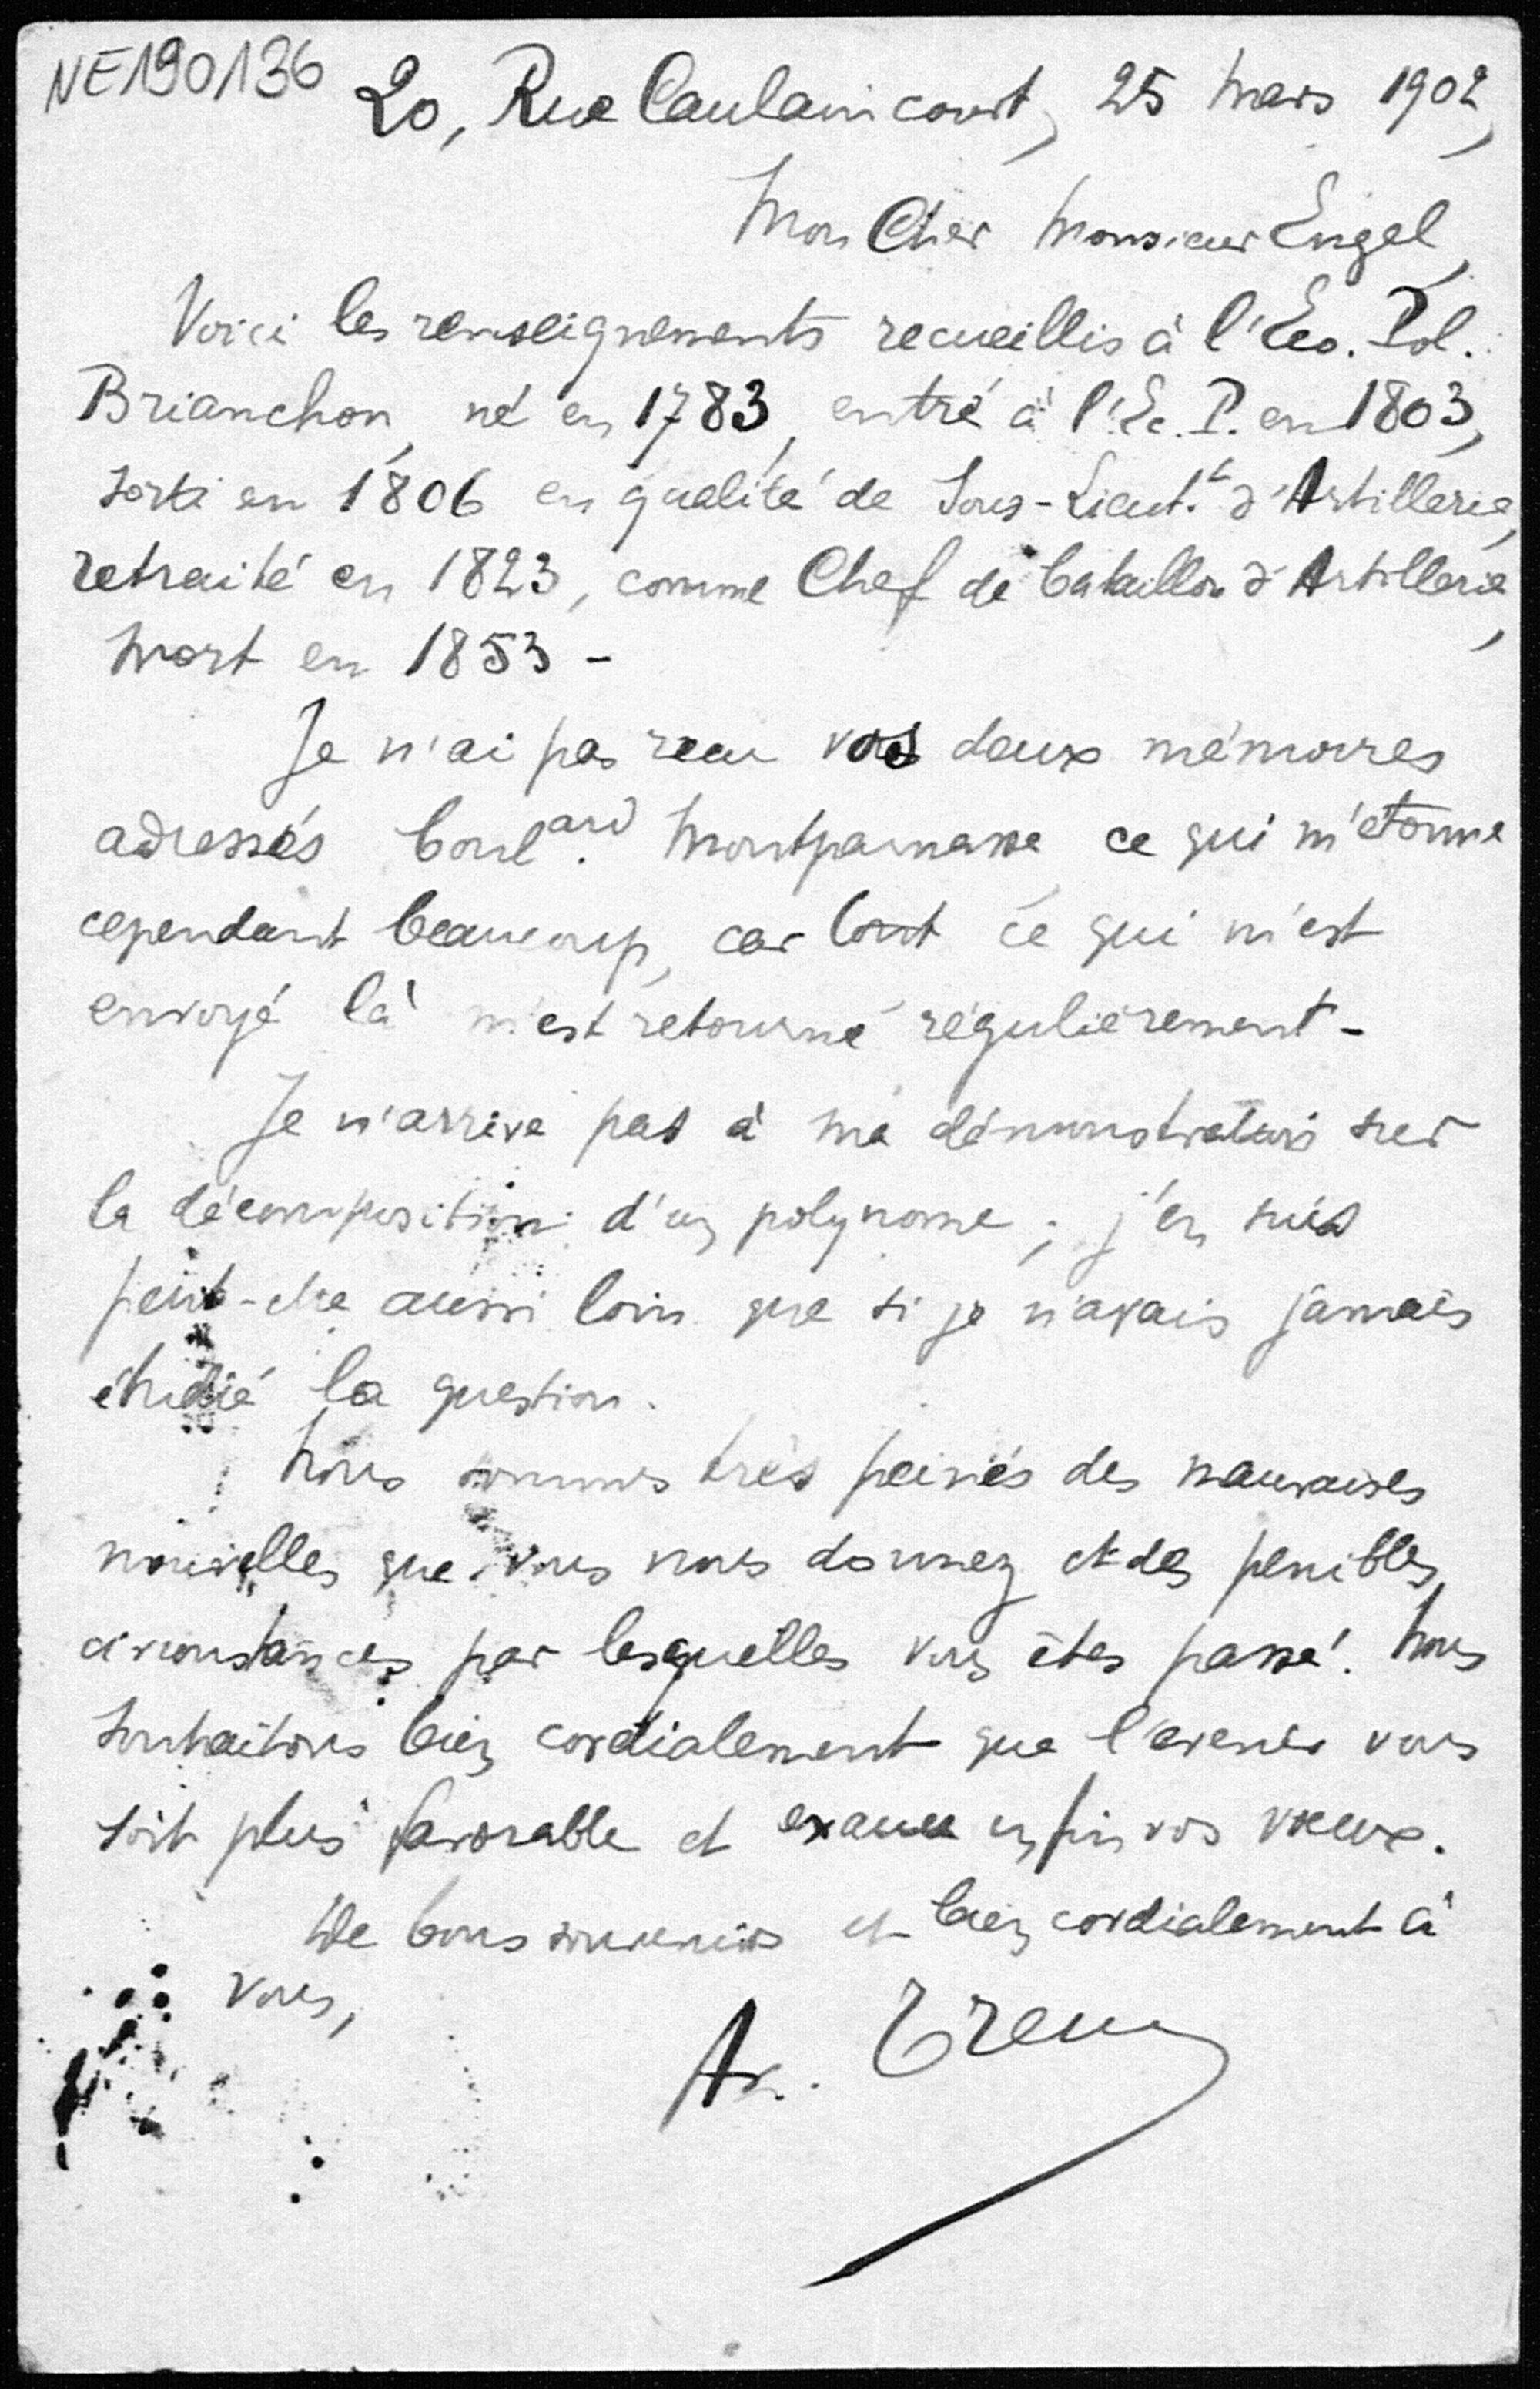 NE190136
20, Rue Caulaincourt, 25 Mars 1902,
Mon Cher Monsieur Engel,
Voici les renseignements recueillis à l'Eco. Pol.
Brianchon, né en 1783, entré à l'Ec. P. en 1803,
sorti en 1806 en qualité de Sous-Lieut.t d'Artillerie,
retraité en 1823, comme Chef de bataillon d'Artillerie,
Mort en 1853 -
Je n'ai pas recu vos deux mémoires
adressés Boulard. Montparnasse ce qui m'étonne
cependant beaucoup, car tout ce qui m'est
envoyé là m'est retourné régulièrement -
Je n'arrive pas à ma démonstration sur
la décomposition d'un polynome ; j'en suis
peut-être aussi loin que si je n'avais jamais
étudié la question.
Nous sommes très peinés des mauvaises
nouvelles que vous nous donnez et des penibles
circonstances par lesquelles vous êtes passé. Nous
souhaitons bien cordialement que l'avenir vous
soit plus favorable et exauce enfin vos vœux.
De bons souvenirs et bien cordialement à
vous,